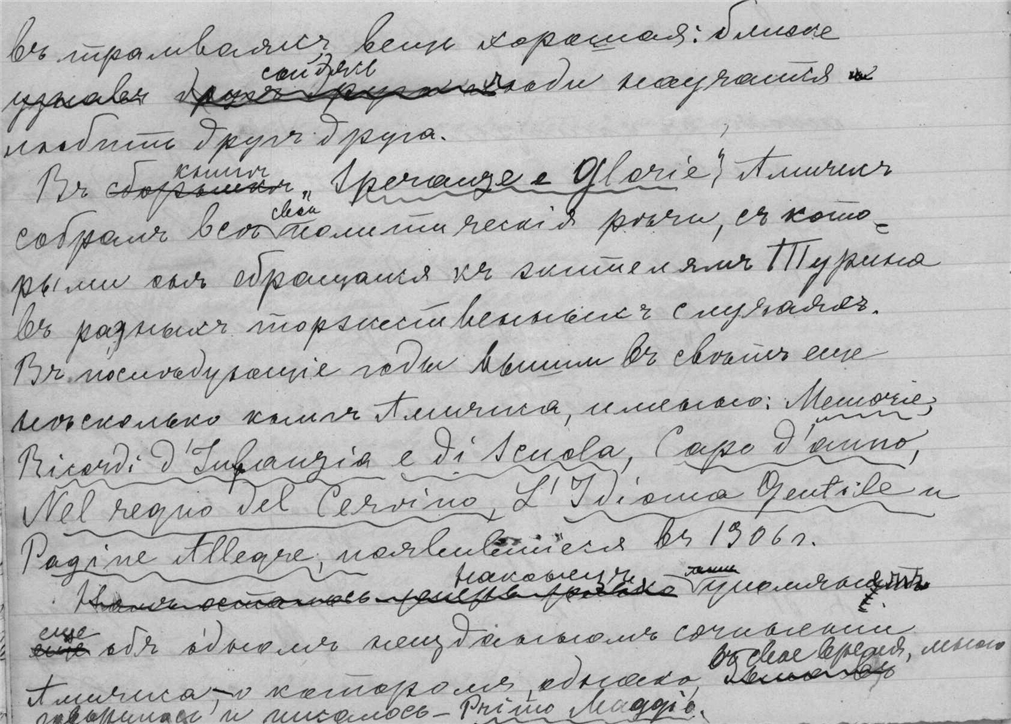 въ трамваяхъ вещь хорошая: ближе
узнавъ сойдясь люди научатся
любить другъ друга.
Въ сборникѣ книгѣ „Speranze e Glorie", Амичисъ
собралъ всѣ свои политическія рѣчи, съ кото-
рыми онъ обращался къ жителямъ Турина
въ разныхъ торжественныхъ случаяхъ.
Въ послѣдующіе годы вышли въ свѣтъ еще
нѣсколько книгъ Амичиса, именно: Memorie,
Ricordi d'Infanzia e di Scuola, Capo d'anno,
Nel regno del Cervino, L'Idioma Gentile и
Pagine Allegre, появившіеся въ 1906 г.
Намъ осталось теперь только наконецъ упомянуть
еще еще объ одномъ неизданномъ сочиненіи
Амичиса, о которомъ, однако, въ свое время, много
говорилось и писалось – Primo Maggio.